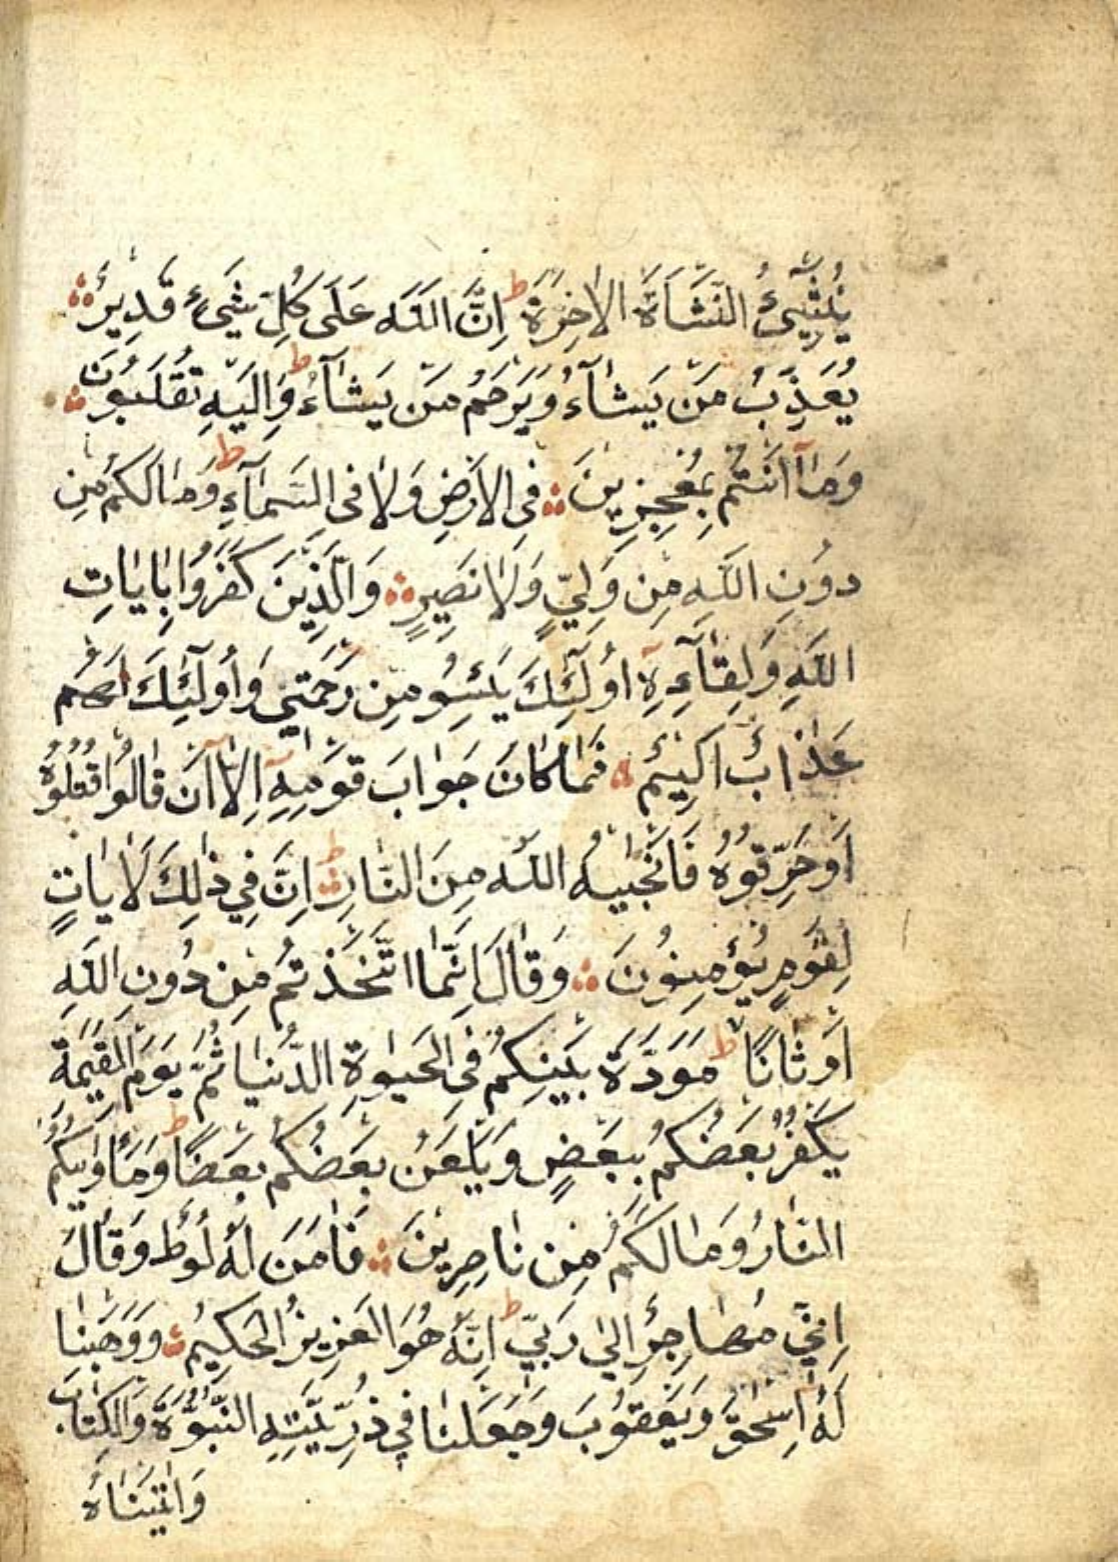 يُنْشِئُ النَّشْأَةَ الْاٰخِرَةَ ط اِنَّ اللّٰهَ عَلٰى كُلِّ شَيْءٍ قَدِيرٌ ۛ
يُعَذِّبُ مَنْ يَشَآءُ وَيَرْحَمُ مَنْ يَشَآءُ ط وَاِلَيْهِ تُقْلَبُونَ ۛ
وَمَآ اَنْتُمْ بِمُعْجِزِينَ ۛ فِى الْاَرْضِ وَلَا فِى السَّمَآءِ ط وَمَا لَكُمْ مِنْ
دُونِ اللّٰهِ مِنْ وَلِيٍّ وَلَا نَصِيرٍ ۛ وَالَّذِينَ كَفَرُوا بِاٰيَاتِ
اللّٰهِ وَلِقَآءِهِٓ اُولٰٓئِكَ يَئِسُو مِنْ رَحْمَتِي وَاُولٰٓئِكَ لَهُمْ
عَذَابٌ اَلِيمٌ ۛ فَمَا كَانَ جَوَابَ قَوْمِهِٓ اِلَّآ اَنْ قَالُوا اقْتُلُوهُ
اَوْ حَرِّقُوهُ فَاَنْجٰيهُ اللّٰهُ مِنَ النَّارِ ط اِنَّ فِي ذٰلِكَ لَاٰيَاتٍ
لِقَوْمٍ يُؤْمِنُونَ ۛ وَقَالَ اِنَّمَا اتَّخَذْتُمْ مِنْ دُونِ اللّٰهِ
اَوْثَانًا ط مَوَدَّةَ بَيْنِكُمْ فِى الْحَيٰوةِ الدُّنْيَا ثُمَّ يَوْمَ الْقِيٰمَةِ
يَكْفُرُ بَعْضُكُمْ بِبَعْضٍ وَيَلْعَنُ بَعْضُكُمْ بَعْضًا ط وَمَأْوٰيكُمُ
النَّارُ وَمَا لَكُمْ مِنْ نَاصِرِينَ ۛ فَاٰمَنَ لَهُ لُوطٌ وَقَالَ
اِنِّي مُهَاجِرٌ اِلٰى رَبِّي ط اِنَّهُ هُوَ الْعَزِيزُ الْحَكِيمُ ۛ وَوَهَبْنَا
لَهُٓ اِسْحٰقَ وَيَعْقُوبَ وَجَعَلْنَا فِي ذُرِّيَّتِهِ النُّبُوَّةَ وَالْكِتَابَ
وَاٰتَيْنَاهُ